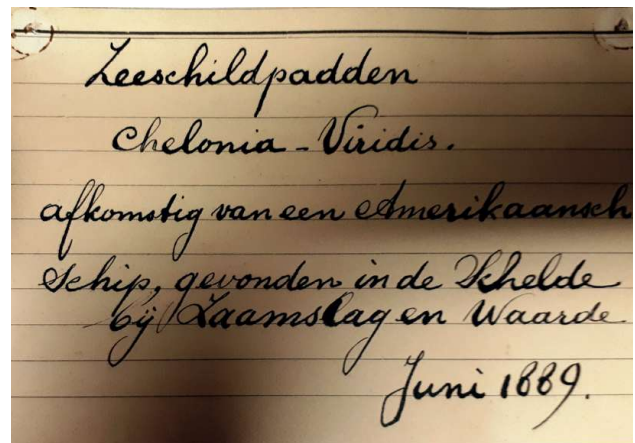 Zeeschildpadden
Chelonia - Viridis.
afkomstig van een Amerikaansch
Schip, gevonden in de Schelde
bij Zaamslag en Waarde
Juni 1889.